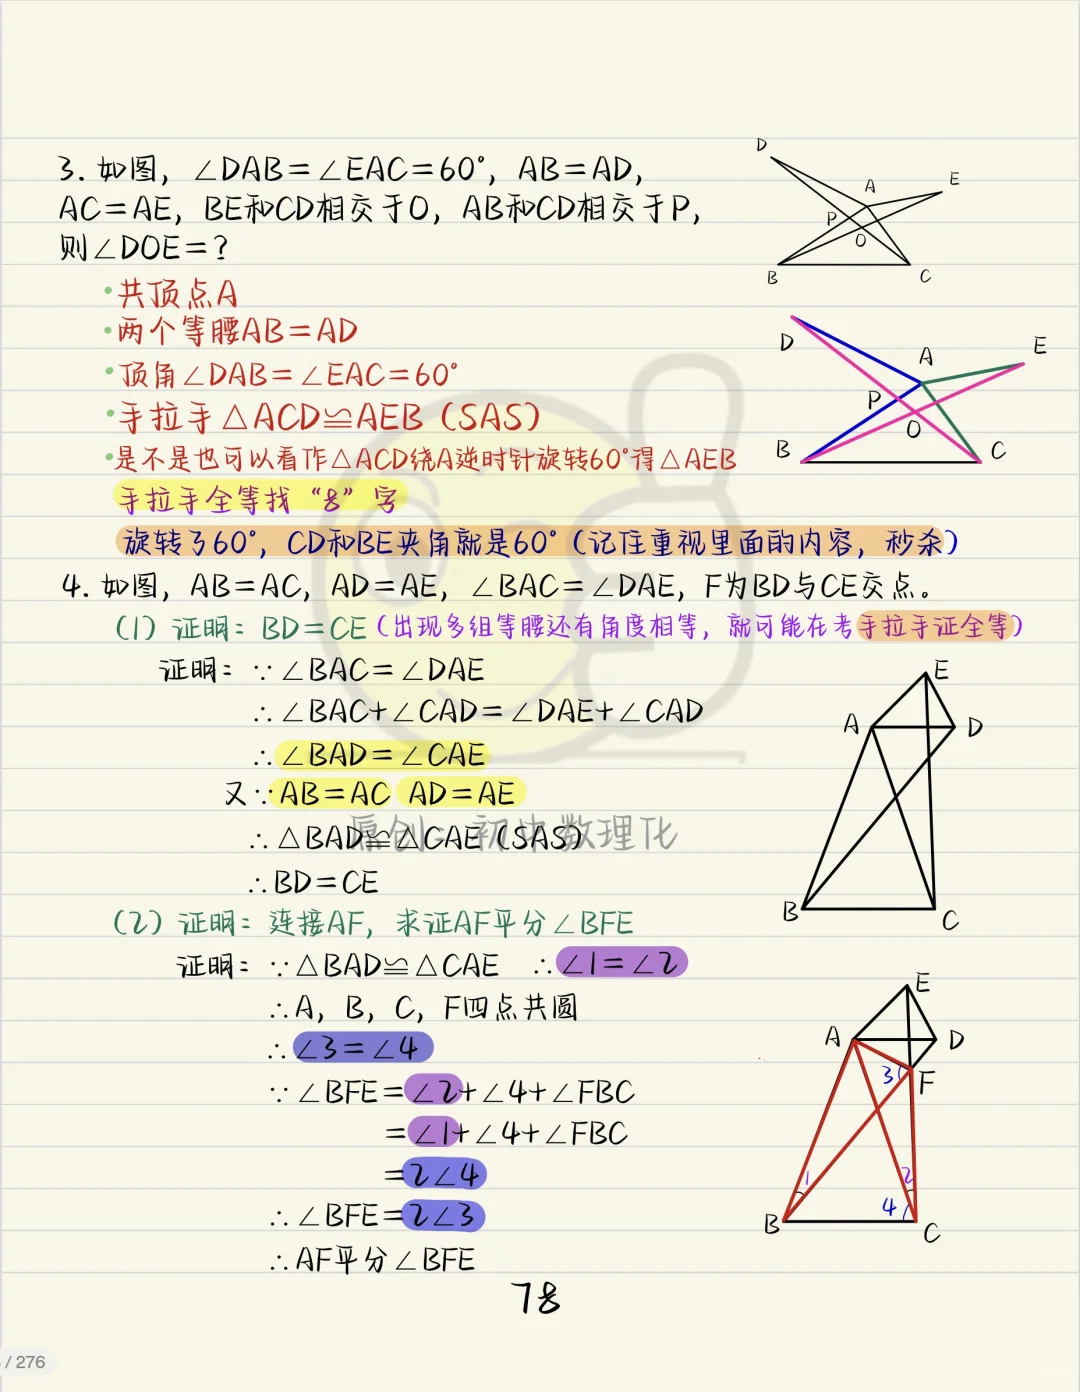 3. 如图，∠DAB=∠EAC=60°，AB=AD，
AC=AE，BE和CD相交于O，AB和CD相交于P，
则∠DOE=?
·共顶点A
·两个等腰AB=AD
·顶角∠DAB=∠EAC=60°
·手拉手△ACD≌AEB（SAS）
·是不是也可以看作△ACD绕A逆时针旋转60°得△AEB
手拉手全等找“8”字
旋转了60°，CD和BE夹角就是60°（记住重视里面的内容，秒杀）
D
A
E
P
O
B
C
D
A
E
P
O
B
C
4. 如图，AB=AC，AD=AE，∠BAC=∠DAE，F为BD与CE交点。
（1）证明：BD=CE（出现多组等腰还有角度相等，就可能在考手拉手证全等）
证明：∵∠BAC=∠DAE
∴∠BAC+∠CAD=∠DAE+∠CAD
∴∠BAD=∠CAE
又∵AB=AC AD=AE
∴△BAD≌△CAE（SAS）
∴BD=CE
原创：初中数理化
E
A
D
B
C
（2）证明：连接AF，求证AF平分∠BFE
证明：∵△BAD≌△CAE ∴∠1=∠2
∴A，B，C，F四点共圆
∴∠3=∠4
∵∠BFE=∠2+∠4+∠FBC
=∠1+∠4+∠FBC
=2∠4
∴∠BFE=2∠3
∴AF平分∠BFE
E
A
D
3
F
1
2
4
B
C
78
/ 276